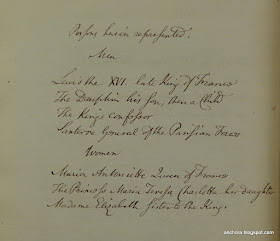 Persons herein represented.
Men
Louis the XVI late King of France
The Dauphin his Son, then a Child
The King's confessor
Santerre General of the Parisian
Women
Maria Antoniette Queen of France
The Princess Maria Teresa Charlotte her daughter
Madame Elizabeth Sister to the King.
aechora.blogspot.com